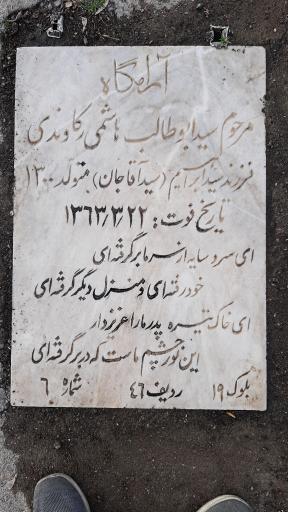 آرامگاه
مرحوم سید ابوطالب هاشمی رکاوندی
فرزند سید ابراهیم (سید آقاجان) متولد ۱۳۰۰
تاریخ فوت: ۱۳۶۳/۳/۲۲
ای سرو سایه از سر ما برگرفته‌ای
خود رفته‌ای و منزل دیگر گرفته‌ای
ای خاک تیره پدر ما را عزیز دار
این نور چشم ماست که در بر گرفته‌ای
بلوک ۱۹ ردیف ۴۶ شماره ۶